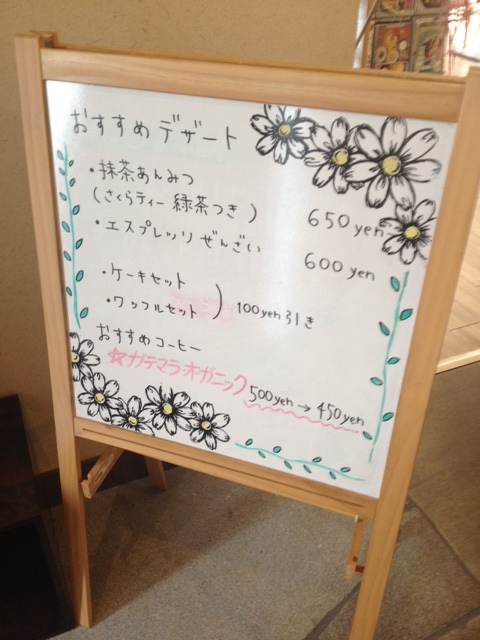 おすすめデザート
・抹茶あんみつ
(さくらティー緑茶つき) 650yen
・エスプレッソぜんざい 600yen
・ケーキセット
・ワッフルセット ) 100yen引き
おすすめコーヒー
☆ガテマラ・オガニック
500yen→450yen